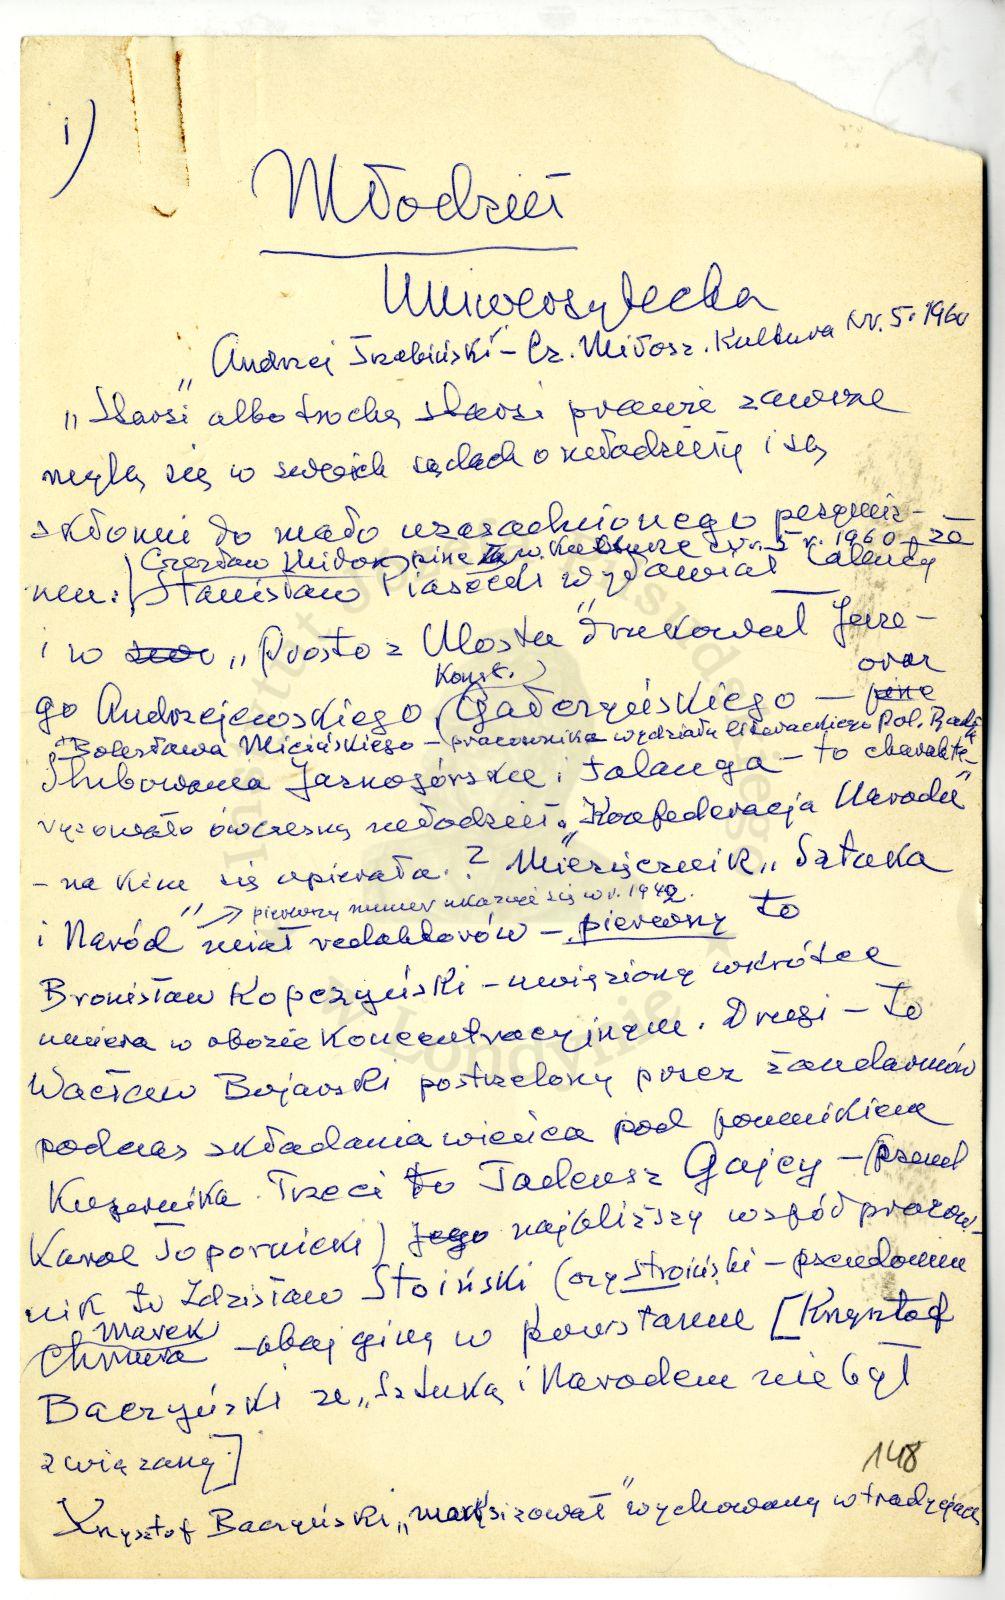 1)
Młodzież
Uniwersytecka
"Andrzej Trzebiński" – Cz. Miłosz. Kultura Nr. 5. 1960
"Starsi albo trochę starsi prawie zawsze
mylą się w swoich sądach o młodzieży i są
skłonni do mało uzasadnionego pesymiz-
Czesław Miłosz pisze w Kulturze nr. 5 r. 1960 – że
mem: Stanisław Piasecki wydawał talenty
i w "Prosto z Mostu" drukował Jerze-
go Andrzejewskiego, Konst. Gałczyńskiego – oraz pisze
Bolesława Micińskiego – pracownika wydziału literackiego Pol. Radia
Ślubowania Jasnogórskie i Falanga – to charakte-
ryzowało ówczesną młodzież. "Konfederacja Narodu"
– na kim się opierała? Miesięcznik "Sztuka
pierwszy numer ukazuje się w r. 1942.
i Naród" miał redaktorów – pierwszy to
Bronisław Kopczyński – uwięziony wkrótce
umiera w obozie koncentracyjnym. Drugi – to
Wacław Bojarski postrzelony przez żandarmów
podczas składania wieńca pod pomnikiem
Kopernika. Trzeci to Tadeusz Gajcy – (pseud
Karol Topornicki) jego najbliższy współpracow-
nik to Zdzisław Stoiński (czy Stroiński – pseudonim
Marek
Chmura – obaj giną w powstaniu [Krzysztof
Baczyński ze "Sztuką i Narodem nie był
związany]
148
Krzysztof Baczyński "marksizował" wychowany w tradycjach
Instytut Józefa Piłsudskiego w Londynie